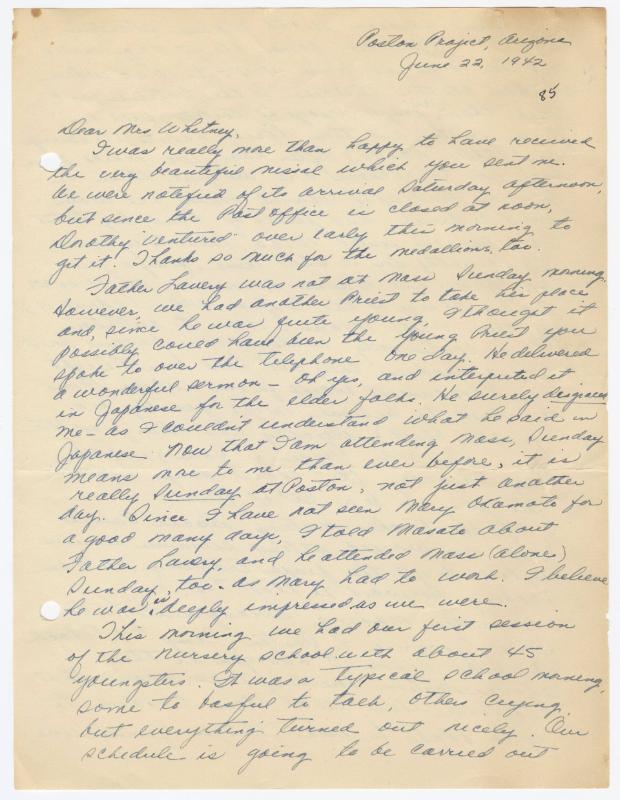 Poston Project, Arizona
June 22, 1942
85
Dear Mrs Whitney,
I was really more than happy to have received
the very beautiful missal which you sent me.
We were notified of its arrival Saturday afternoon,
but since the Post office is closed at noon,
Dorothy "ventured" over early this morning to
get it. Thanks so much for the medallions, too.
Father Lavery was not at Mass Sunday morning.
However, we had another Priest to take his place
and, since he was quite young, I thought it
possibly could have been the young Priest you
spoke to over the telephone one day. He delivered
a wonderful sermon - oh yes, and interpreted it
in Japanese for the elder folks. He surely disgraced
me - as I couldn't understand what he said in
Japanese. Now that I am attending Mass, Sunday
means more to me than ever before, it is
really Sunday at Poston, not just another
day. Since I have not seen Mary Okamoto for
a good many days, I told Masato about
Father Lavery, and he attended Mass (alone)
Sunday, too - as Mary had to work. I believe
he was as deeply impressed as we were.
This morning we had our first session
of the nursery school with about 45
youngsters. It was a typical school morning,
some to basful to talk, others crying,
but everything turned out nicely. Our
schedule is going to be carried out